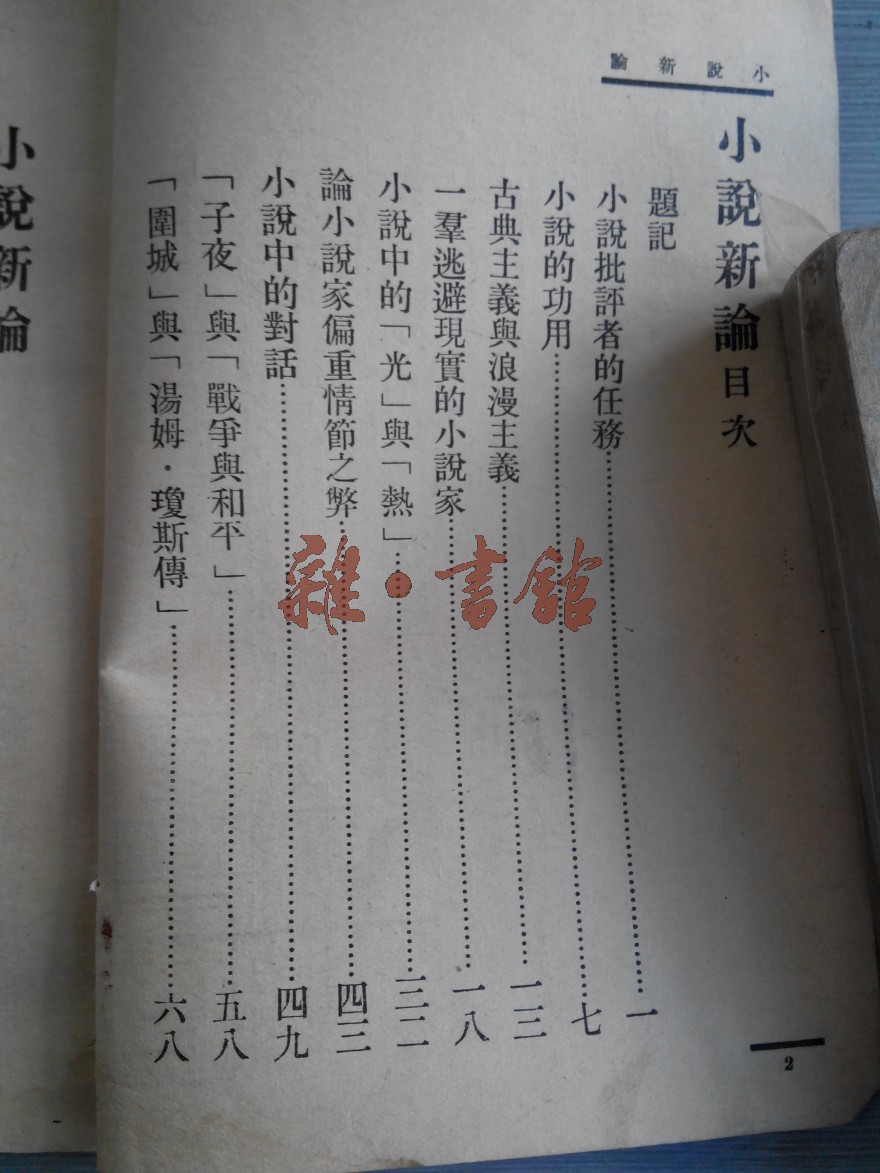 小說新論
小說新論目次
題記
小說批評者的任務……一
小說的功用……七
古典主義與浪漫主義……一三
一羣逃避現實的小說家……一八
小說中的「光」與「熱」……三二
論小說家偏重情節之弊……四三
小說中的對話……四九
「子夜」與「戰爭與和平」……五八
「圍城」與「湯姆·瓊斯傳」……六八
2
小說新論
雜·書館